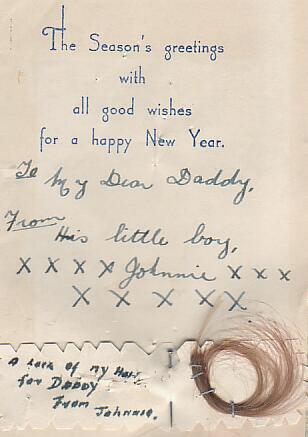 The Season's greetings
with
all good wishes
for a happy New Year.
To My Dear Daddy,
From
His little boy,
X X X X Johnnie X X X
X X X X X
A Lock of my Hair
for Daddy
From Johnnie.